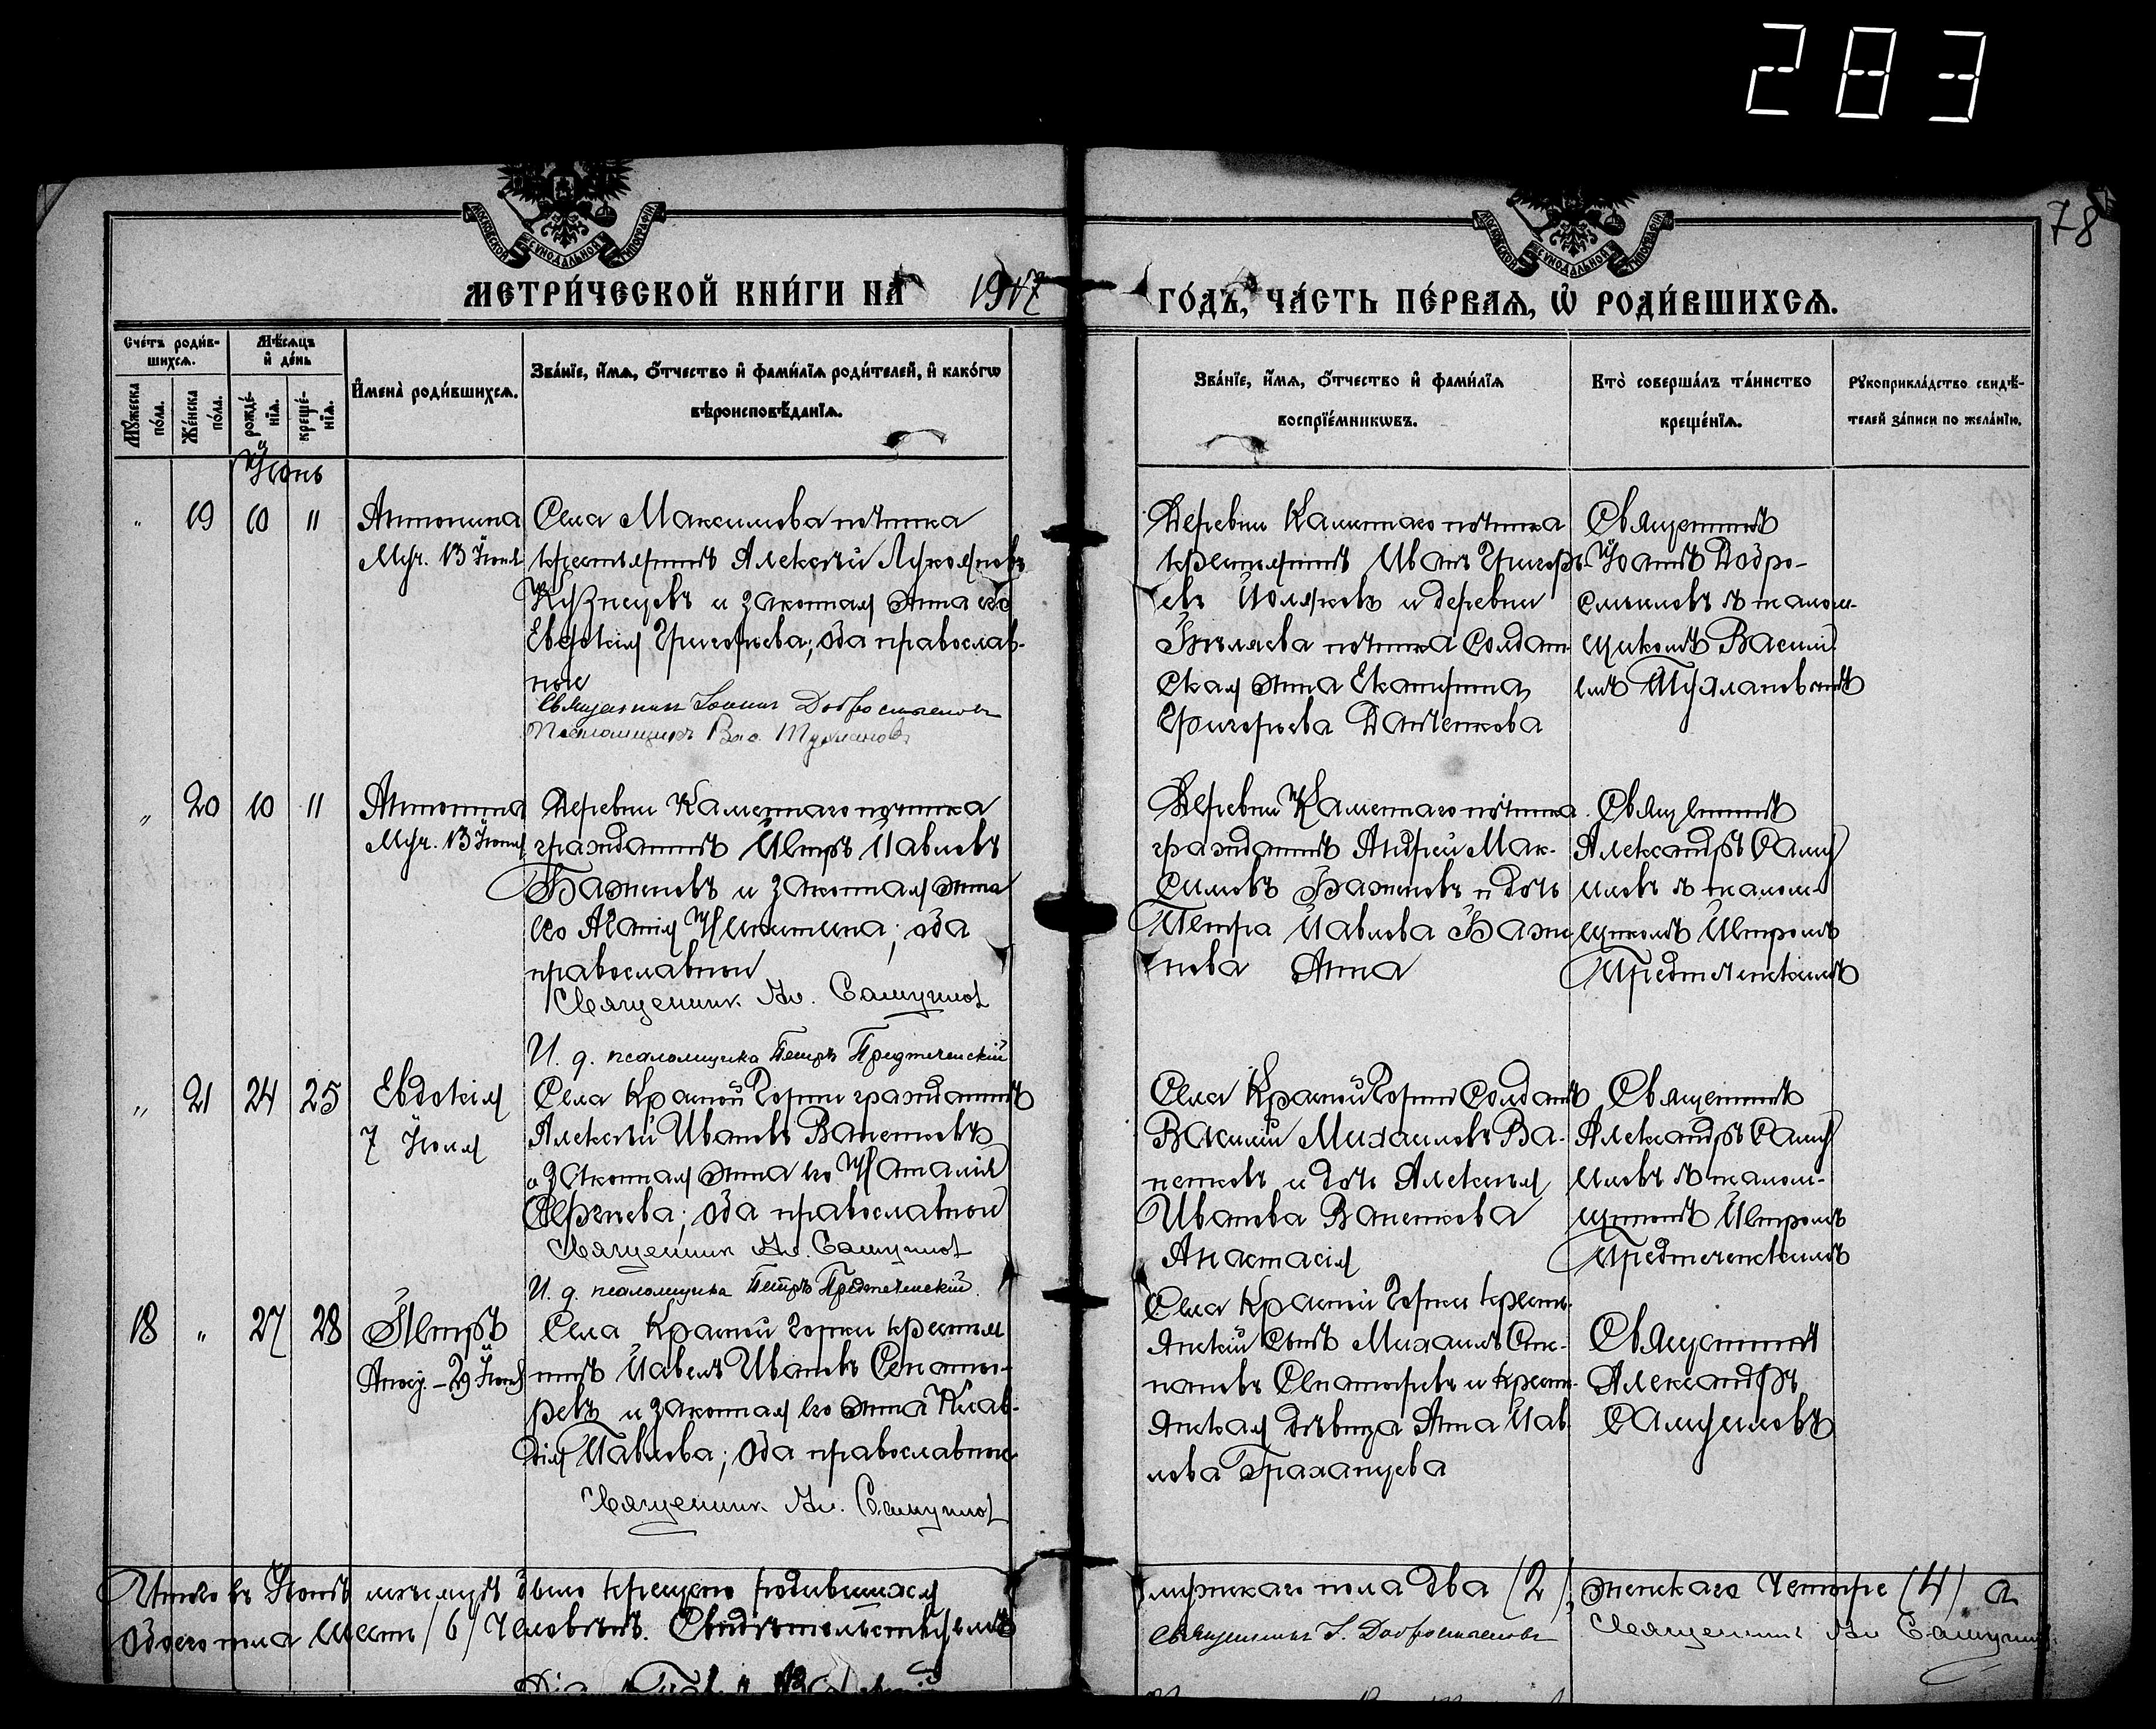 283
78
МОСКОВСКОЙ СѴНОДАЛЬНОЙ ТИПОГРАФІИ
МОСКОВСКОЙ СѴНОДАЛЬНОЙ ТИПОГРАФІИ
МЕТРИ́ЧЕСКОЙ КНИ́ГИ НА 1917
ГО́ДЪ, ЧА́СТЬ ПЕ́РВАѦ, Ѡ҆ РОДИ́ВШИХСѦ.
Сче́тъ роди́в-
шихсѧ.
Мѣ́сѧцъ
и҆ де́нь
Мꙋ́жеска
по́ла.
Же́нска
по́ла.
рожде́-
нїѧ.
креще́-
нїѧ.
И҆мена̀ роди́вшихсѧ.
Зва́нїе, и҆́мѧ, ѻ҆́тчество и҆ фами́лїѧ роди́телей, и҆ како́гѡ
вѣроисповѣ́данїѧ.
Зва́нїе, и҆́мѧ, ѻ҆́тчество и҆ фами́лїѧ
воспрїе́мникѡвъ.
Кто̀ соверша́лъ та́инство
креще́нїѧ.
Рꙋкоприкла́дство свидѣ́-
телей за́писи по жела́нїю.
Іюнь
" 19 10 11
Антонина
Муч. 13 Іюня
Села Максимова починка
крестьянинъ Алексѣй Лукояновъ
Кузнецовъ и законная жена его
Евдокія Григорьева; оба православ-
ные
Священникъ Іоаннъ Добросмысловъ
Псаломщикъ Вас. Тумановъ
Деревни Каменнаго починка
крестьянинъ Иванъ Григорь-
евъ Поляковъ и деревни
починка солдат-
ская жена Екатерина
Григорьева
Священникъ
Іоаннъ Добро-
смысловъ съ псалом-
щикомъ Васили-
емъ
" 20 10 11
Антонина
Муч. 13 Іюня
Деревни Каменнаго починка
гражданинъ Петръ Павловъ
Баженовъ и законная жена
его Агаѳія Никитина; оба
православные
Священник Ал. Самуилов
И. д. псаломщика Петръ Предтеченскій
Деревни Каменнаго починка
гражданинъ Андрей Мак-
симовъ Баженовъ и дочь
Петра Павлова Баже-
нова Анна
Священникъ
Александръ Саму-
иловъ съ псалом-
щикомъ Петромъ
Предтеченскимъ
" 21 24 25
Евдокія
7 Іюля
Села Красной Горки гражданинъ
Алексѣй Ивановъ Ваненковъ
и законная жена его Наталія
Сергѣева; оба православные
Священник Ал. Самуилов
И. д. псаломщика Петръ Предтеченскій
Села Красной Горки солдатъ
Василій Михаиловъ Ва-
ненковъ и дочь Алексѣя
Иванова Ваненкова
Анастасія
Священникъ
Александръ Саму-
иловъ съ псалом-
щикомъ Петромъ
Предтеченскимъ
18 " 27 28
Петръ
Апос. – 29 Іюня
Села Красной Горки крестья-
нинъ Павелъ Ивановъ Сенато-
ровъ и законная его жена Клав-
дія Павлова; оба православные
Священник Ал. Самуилов
Села Красной Горки кресть-
янскій сынъ Михаилъ Сте-
пановъ Сенаторовъ и кресть-
янская дѣвица Анна Пав-
лова
Священникъ
Александръ
Самуиловъ
Итого въ Іюнѣ мѣсяцѣ было крещено родившихся
мужскаго пола два (2), женскаго четыре (4), а
обоего пола шесть (6) человѣкъ. Свидѣтельствуемъ
Священникъ І. Добросмысловъ
Священникъ Ал. Самуилов